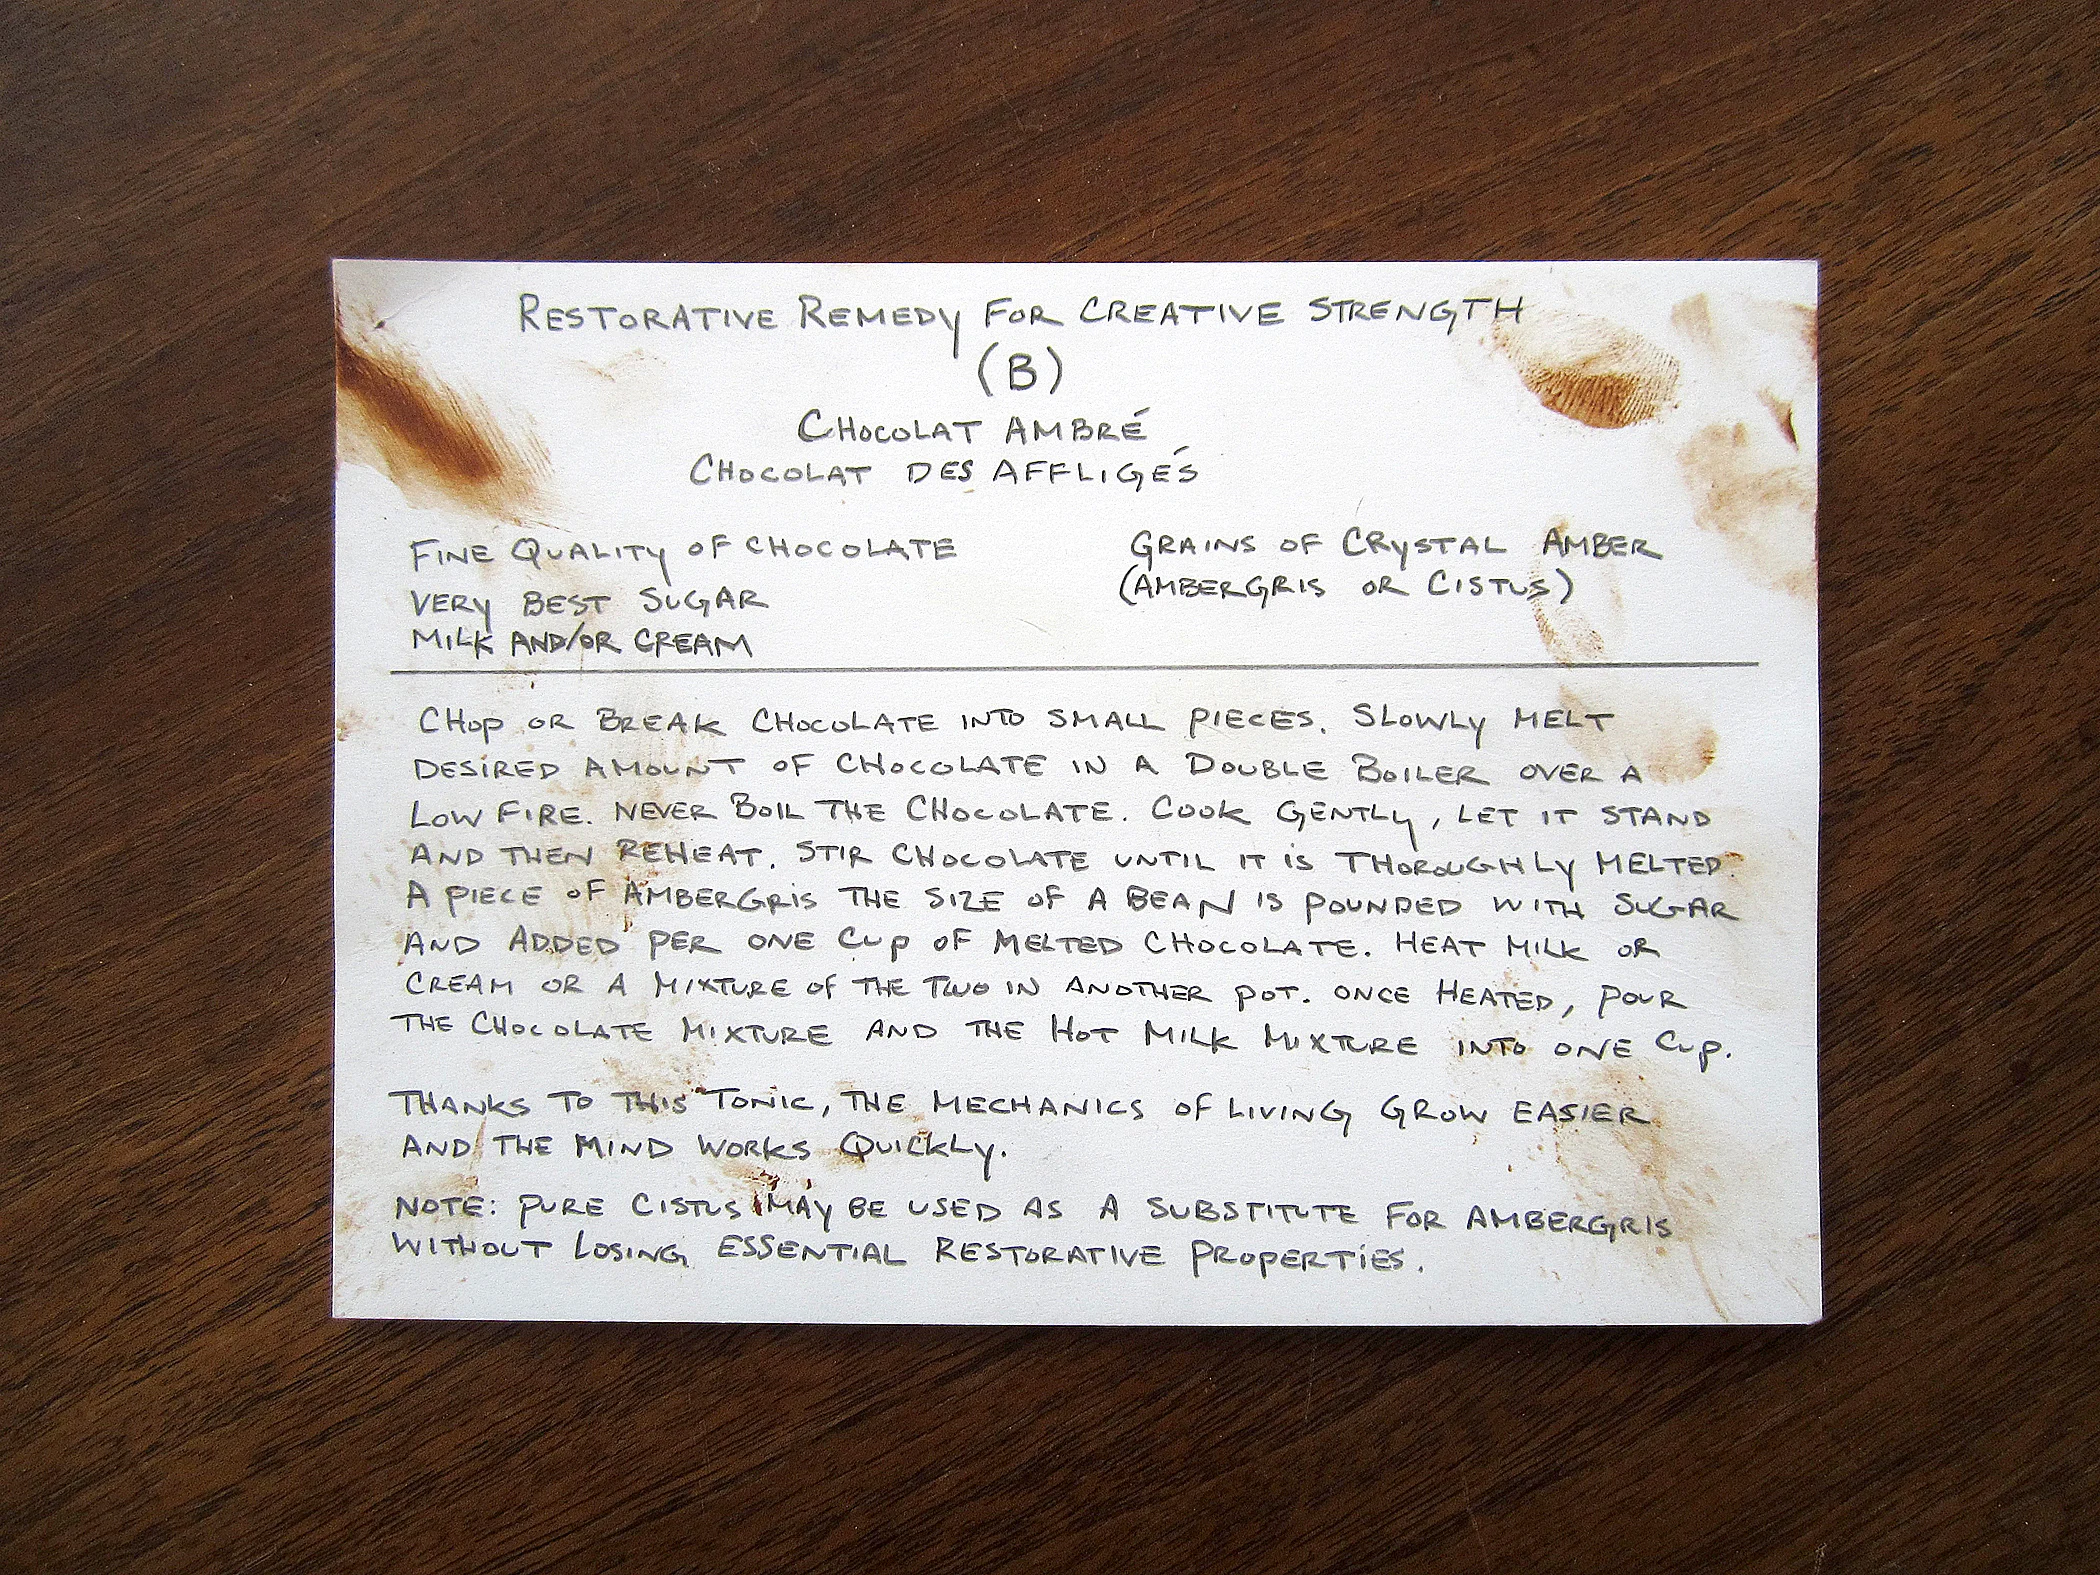 RESTORATIVE REMEDY FOR CREATIVE STRENGTH
(B)
CHOCOLAT AMBRÉ
CHOCOLAT DES AFFLIGÉS
FINE QUALITY OF CHOCOLATE
VERY BEST SUGAR
MILK AND/OR CREAM
GRAINS OF CRYSTAL AMBER
(AMBERGRIS OR CISTUS)
CHOP OR BREAK CHOCOLATE INTO SMALL PIECES. SLOWLY MELT
DESIRED AMOUNT OF CHOCOLATE IN A DOUBLE BOILER OVER A
LOW FIRE. NEVER BOIL THE CHOCOLATE. COOK GENTLY, LET IT STAND
AND THEN REHEAT. STIR CHOCOLATE UNTIL IT IS THOROUGHLY MELTED.
A PIECE OF AMBERGRIS THE SIZE OF A BEAN IS POUNDED WITH SUGAR
AND ADDED PER ONE CUP OF MELTED CHOCOLATE. HEAT MILK OR
CREAM OR A MIXTURE OF THE TWO IN ANOTHER POT. ONCE HEATED, POUR
THE CHOCOLATE MIXTURE AND THE HOT MILK MIXTURE INTO ONE CUP.
THANKS TO THIS TONIC, THE MECHANICS OF LIVING GROW EASIER
AND THE MIND WORKS QUICKLY.
NOTE: PURE CISTUS MAY BE USED AS A SUBSTITUTE FOR AMBERGRIS
WITHOUT LOSING ESSENTIAL RESTORATIVE PROPERTIES.